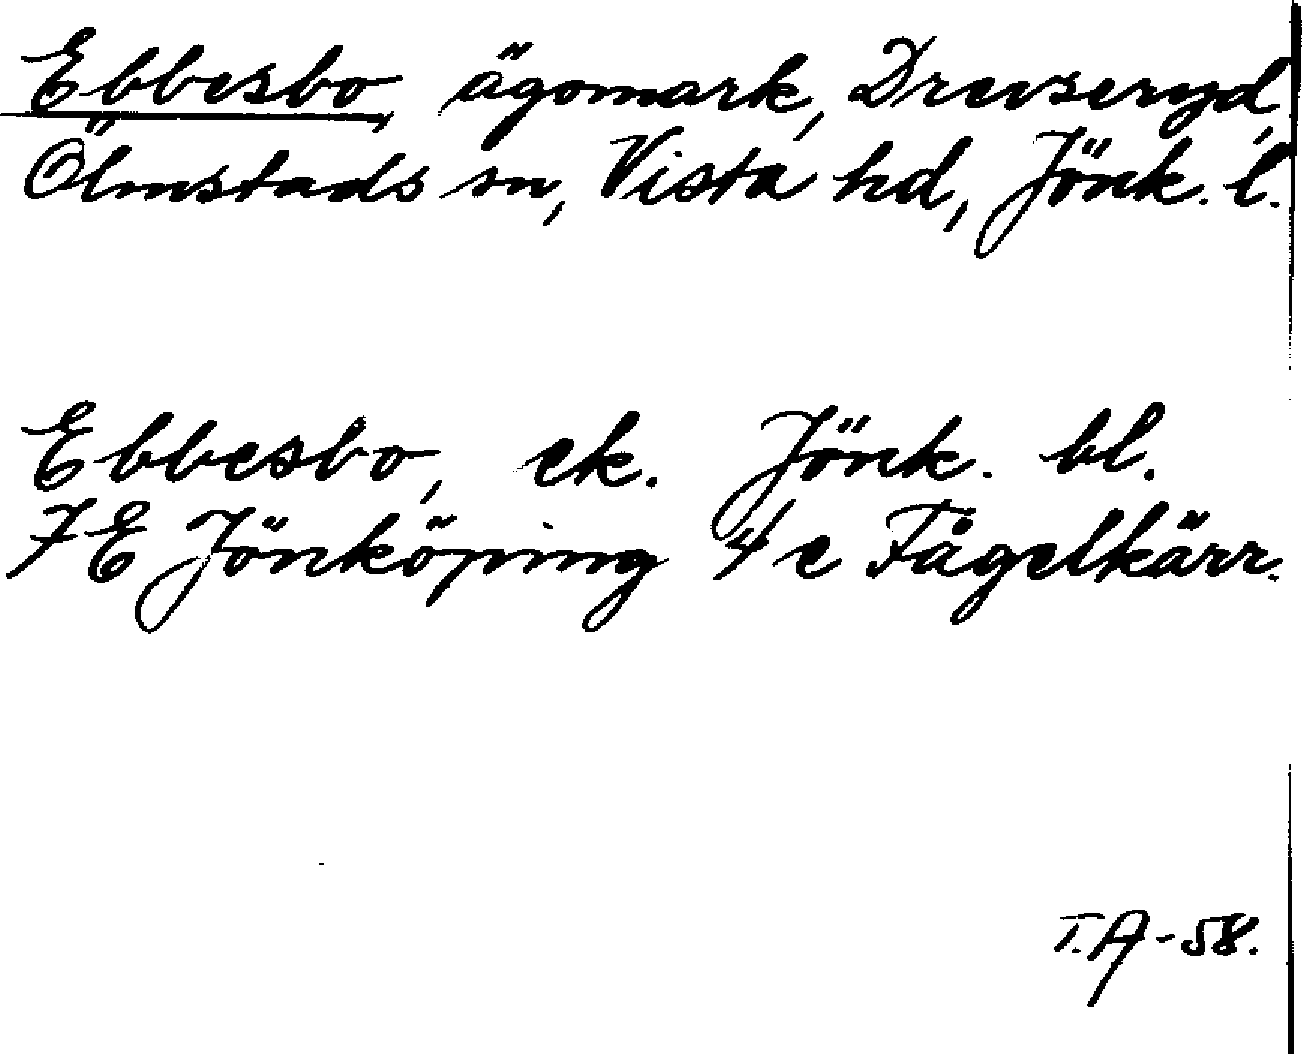 Ebbesbo, ägomark, Drevseryd,
Ölmstads sn, Vista hd, Jönk. l.
Ebbesbo, ek. Jönk. bl.
7E Jönköping 4e Fågelkärr.
T.A-58.